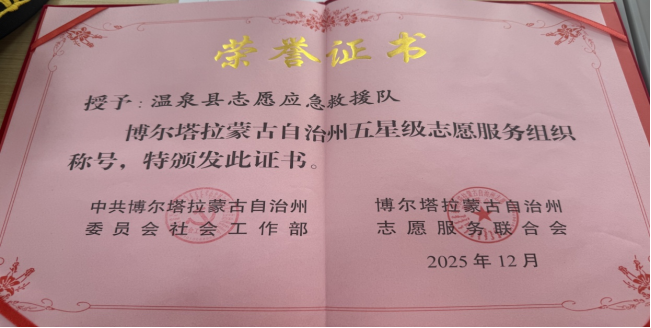 荣誉证书
授予:温泉县志愿应急救援队
博尔塔拉蒙古自治州五星级志愿服务组织
称号,特颁发此证书。
中共博尔塔拉蒙古自治州
委员会社会工作部
博尔塔拉蒙古自治州
志愿服务联合会
2025年12月